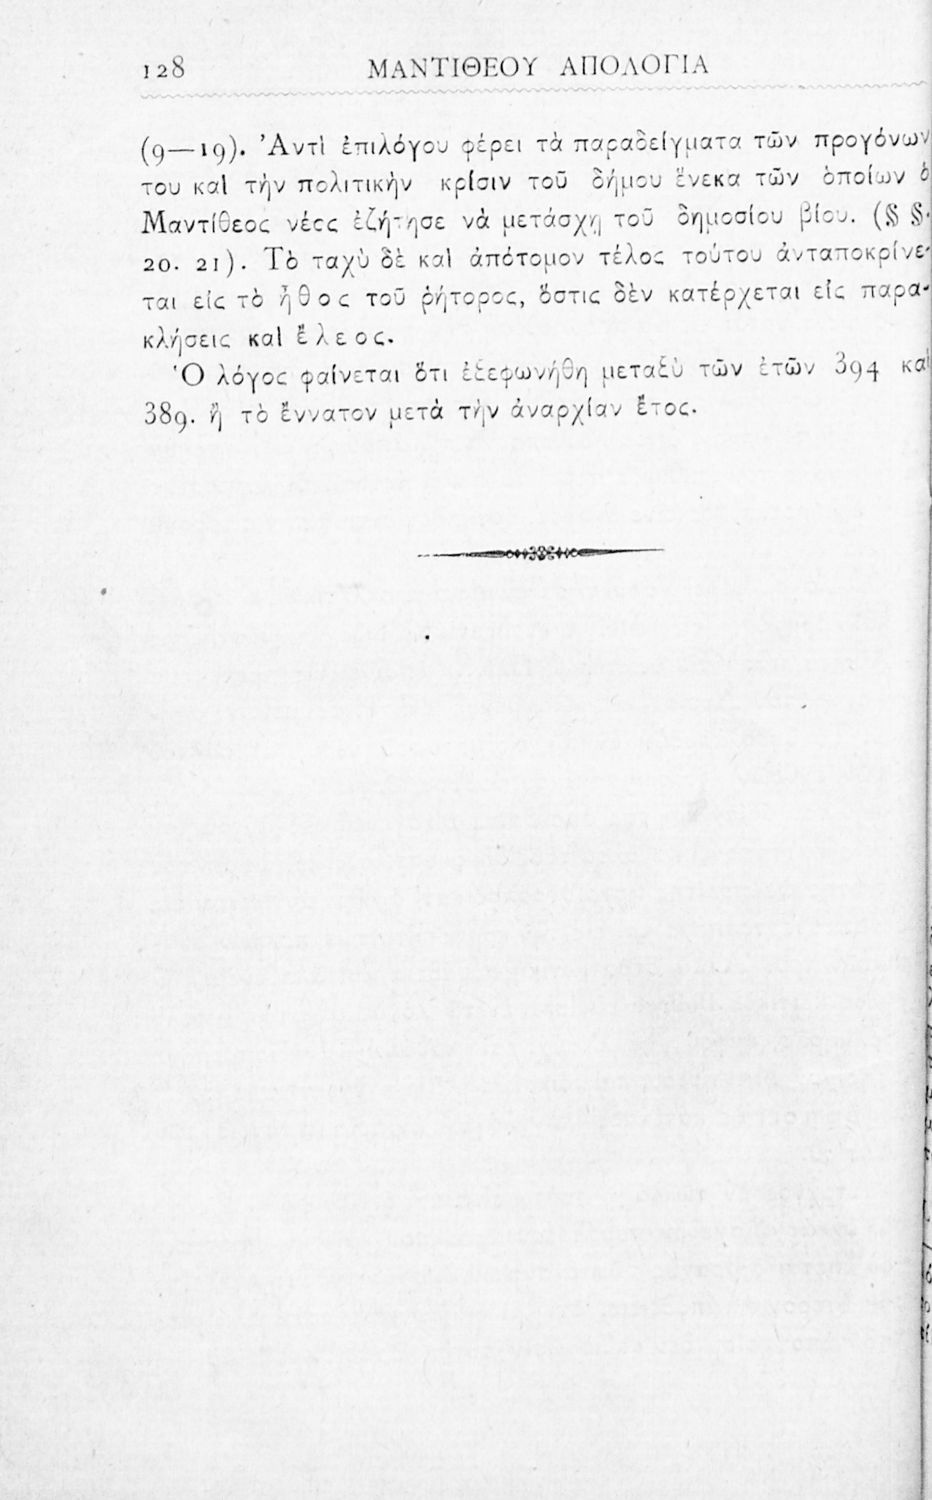 128 ΜΑΝΤΙΘΕΟΥ ΑΠΟΛΟΓΙΑ
(9—19). Ἀντὶ ἐπιλόγου φέρει τὰ παραδείγματα τῶν προγόνων
του καὶ τὴν πολιτικὴν κρίσιν τοῦ δήμου ἕνεκα τῶν ὁποίων ὁ
Μαντίθεος νέος ἐζήτησε νὰ μετάσχῃ τοῦ δημοσίου βίου. (§ §.
20. 21). Τὸ ταχὺ δὲ καὶ ἀπότομον τέλος τούτου ἀνταποκρίνε-
ται εἰς τὸ ἦθος τοῦ ῥήτορος, ὅστις δὲν κατέρχεται εἰς παρα-
κλήσεις καὶ ἔλεος.
Ὁ λόγος φαίνεται ὅτι ἐξεφωνήθη μεταξὺ τῶν ἐτῶν 394 καὶ
389. ἢ τὸ ἔννατον μετὰ τὴν ἀναρχίαν ἔτος.